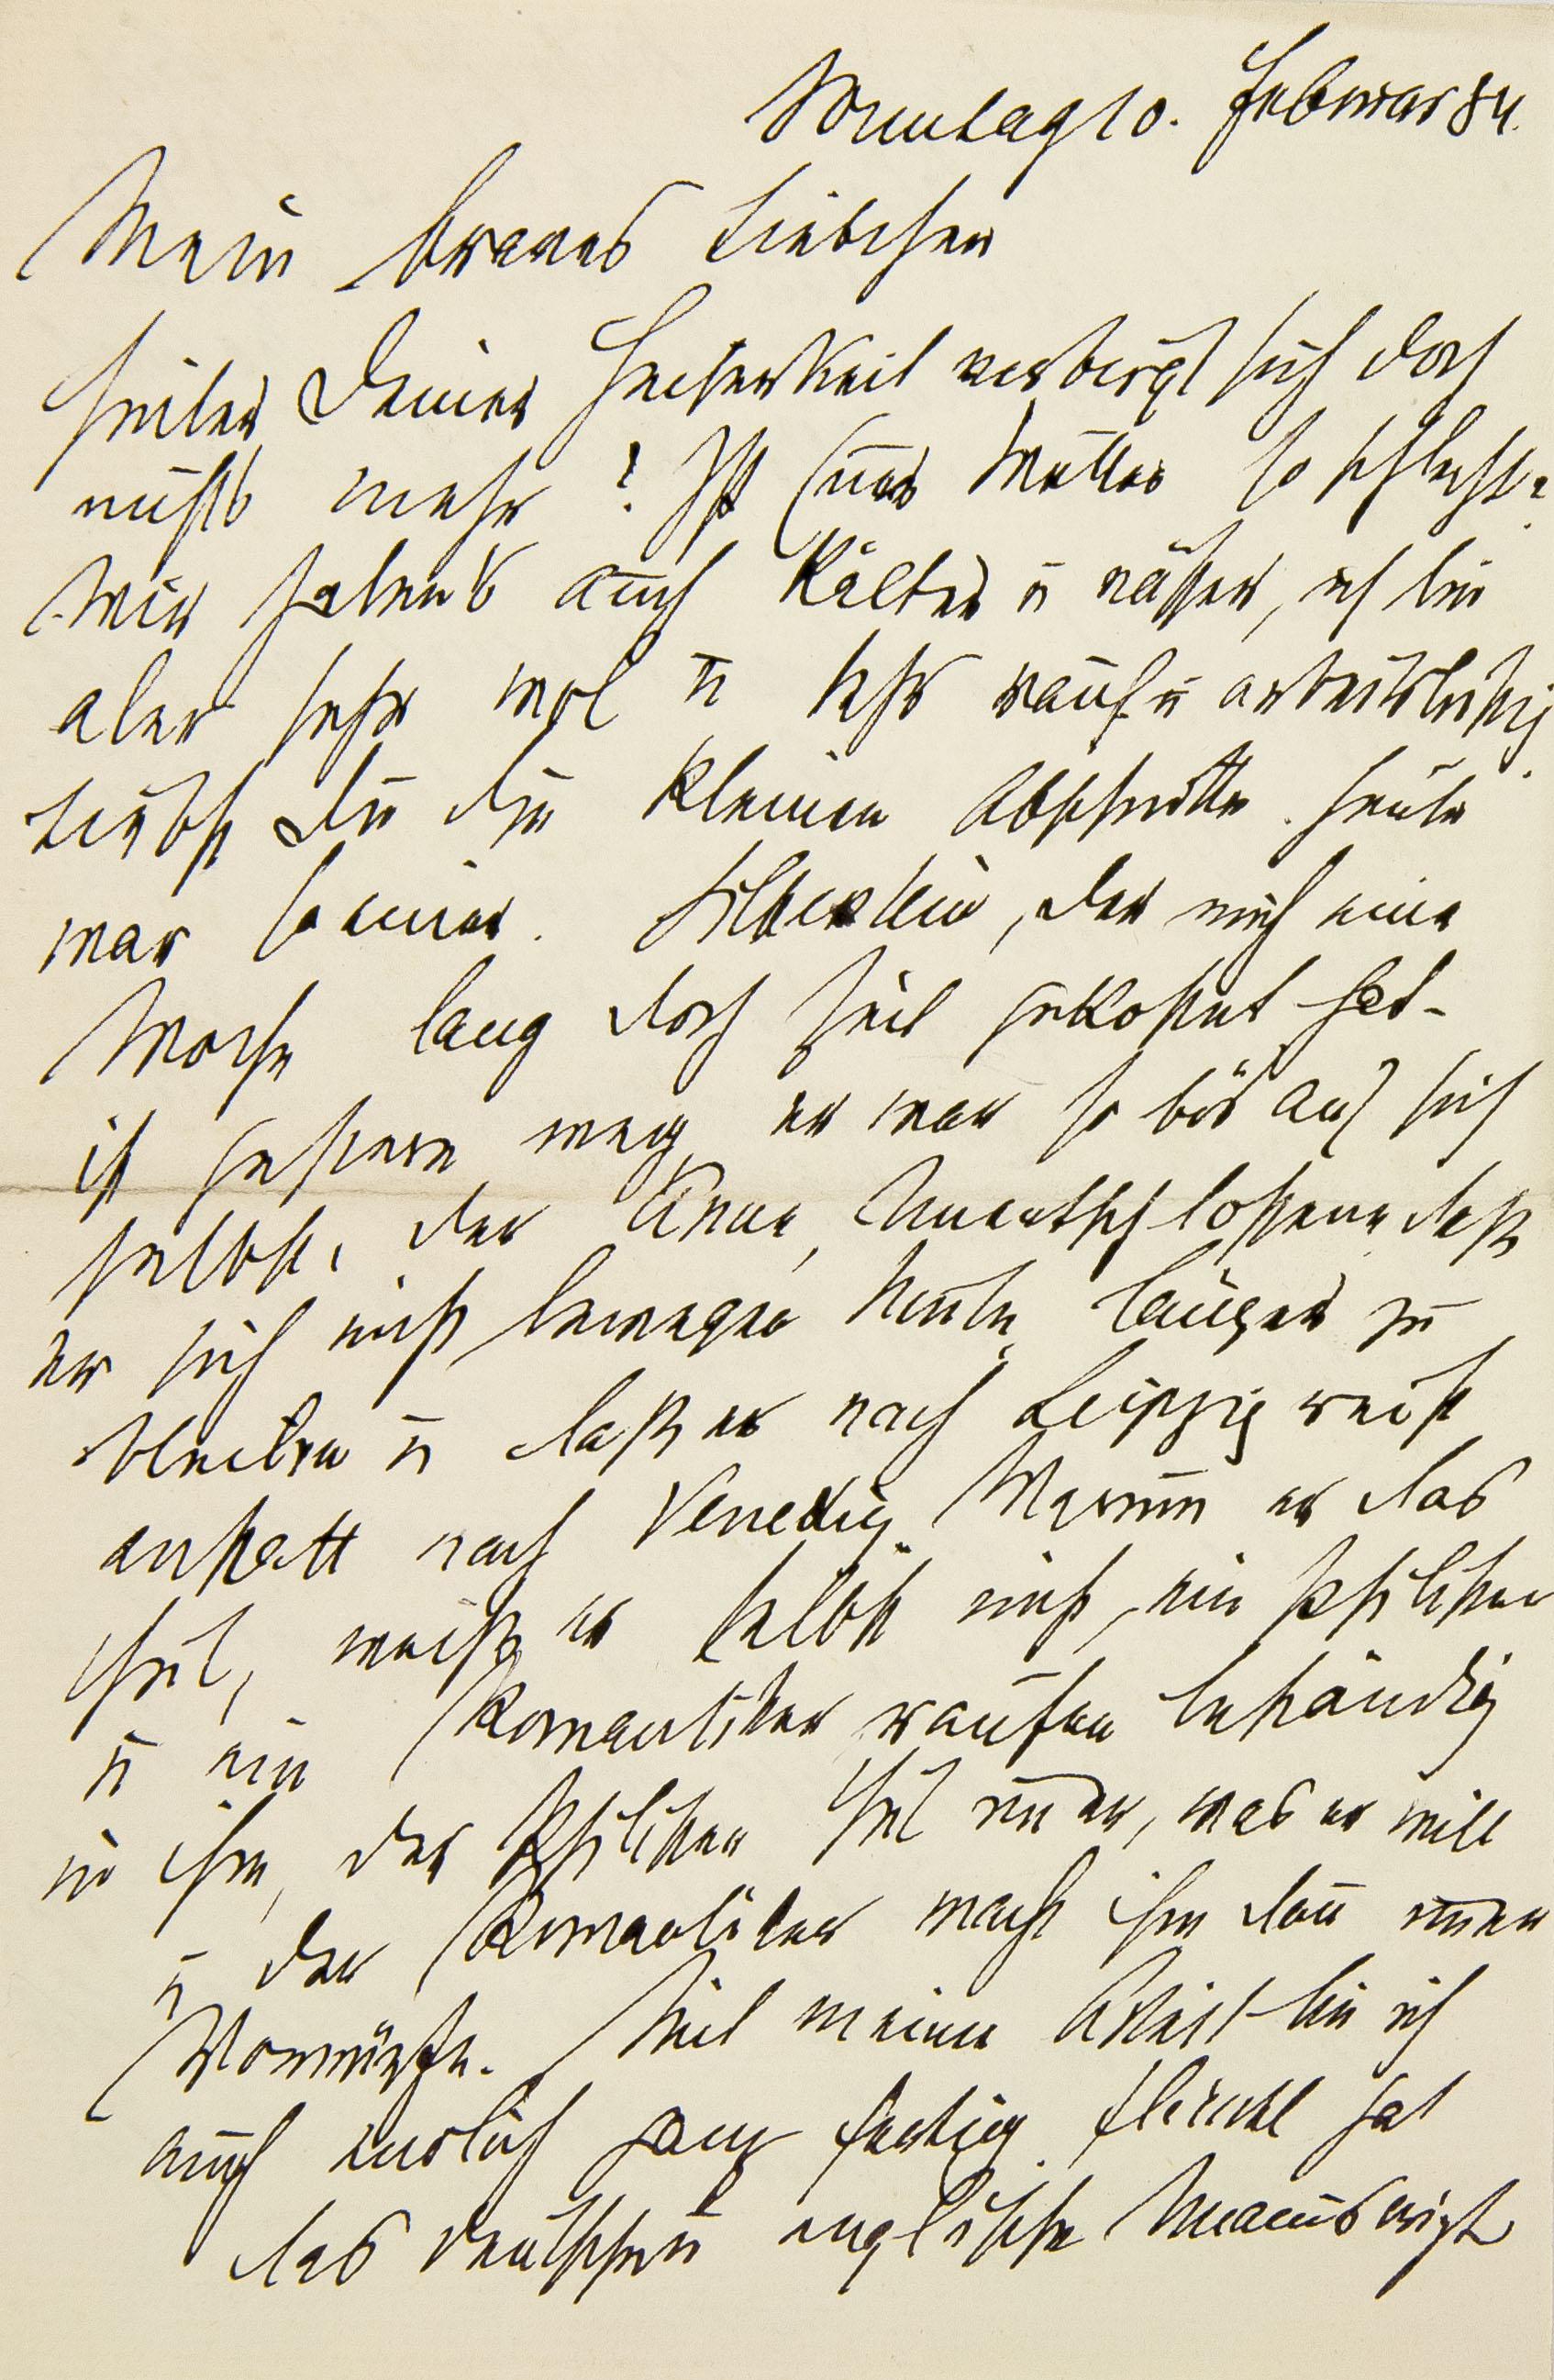 Sonntag 10. Februar 84.
Mein braves Liebchen
Hinter Deiner Heiserkeit verbirgt sich doch
nichts mehr? Ist Euer Wetter so schlecht?
Wir haben's auch kälter u nässer, ich bin
aber sehr wol u sehr rauf- u arbeitslustig
Liebst Du die kleinen Abschnitte. Heute
war so einer. Silberstein, der mich eine
Woche lang doch Zeit gekostet hat -
ist gestern weg, er war so bös auf sich
selbst, der Arme, Unentschlossene, daß
er sich nicht bewegen konnte, länger zu
bleiben u daß er nach Leipzig reist
anstatt nach Venedig. Warum er das
thut, weiß er selbst nicht, ein Philister
u ein Romantiker raufen beständig
in ihm, der Philister thut immer, was er will
u der Romantiker macht ihm dann immer
Vorwürfe. Mit meiner Arbeit bin ich
auch endlich ganz fertig. Fleischl hat
das deutsche u englische Manuscript